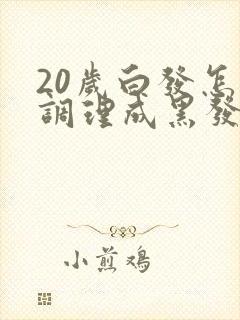 20歲白發怎
調理成黑發
小煎鸡